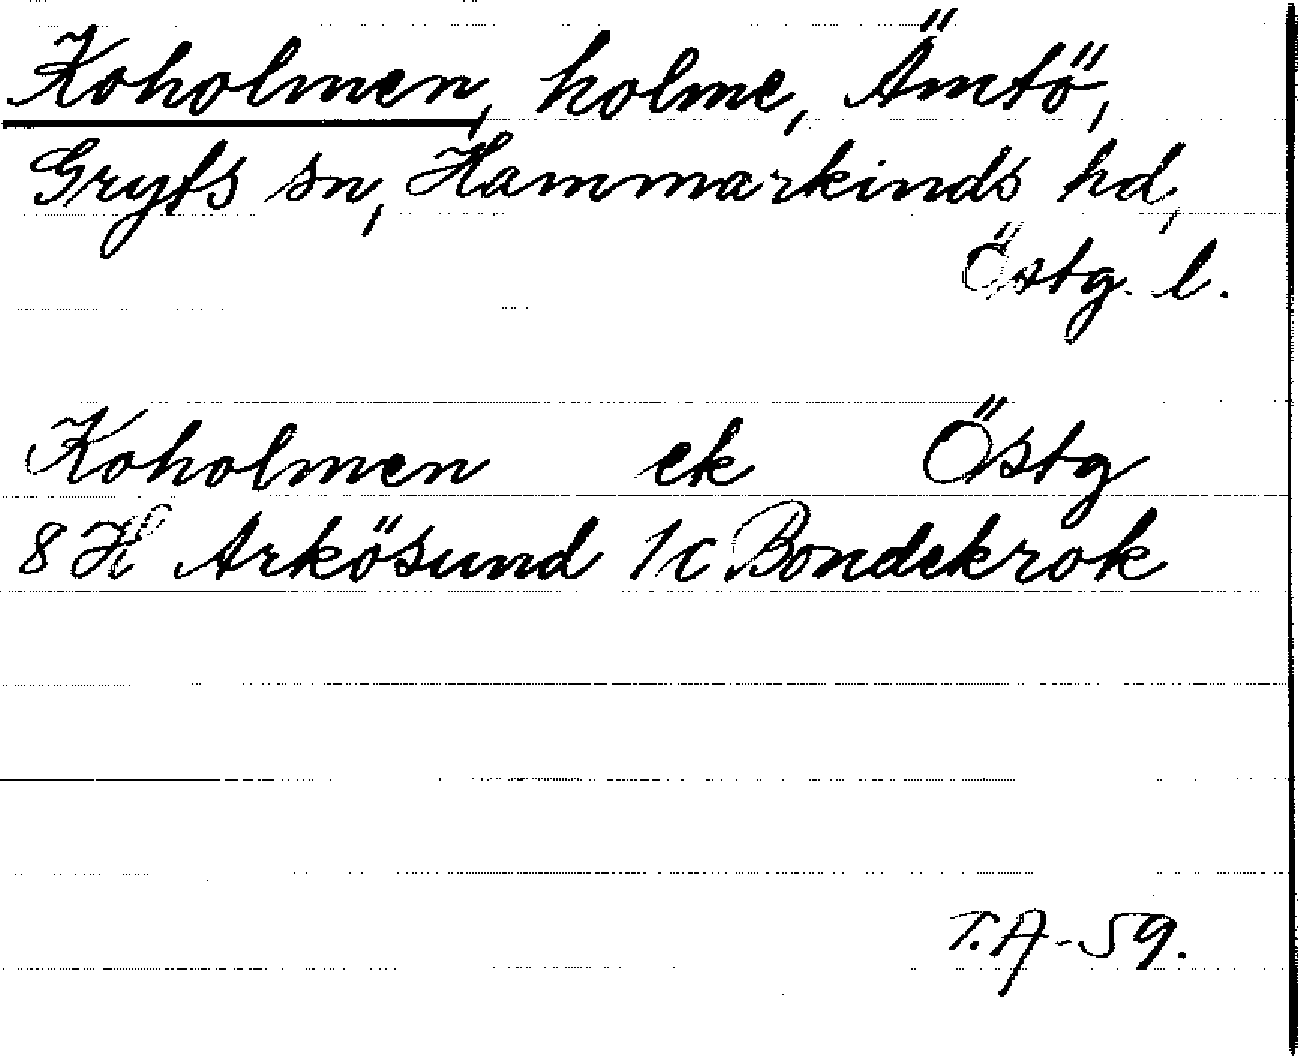 Koholmen, holme, Ämtö,
Gryts sn, Hammarkinds hd,
Östg. l.
Koholmen ek Östg
8 H Arkösund 1c Bondekrok
T.A-59.